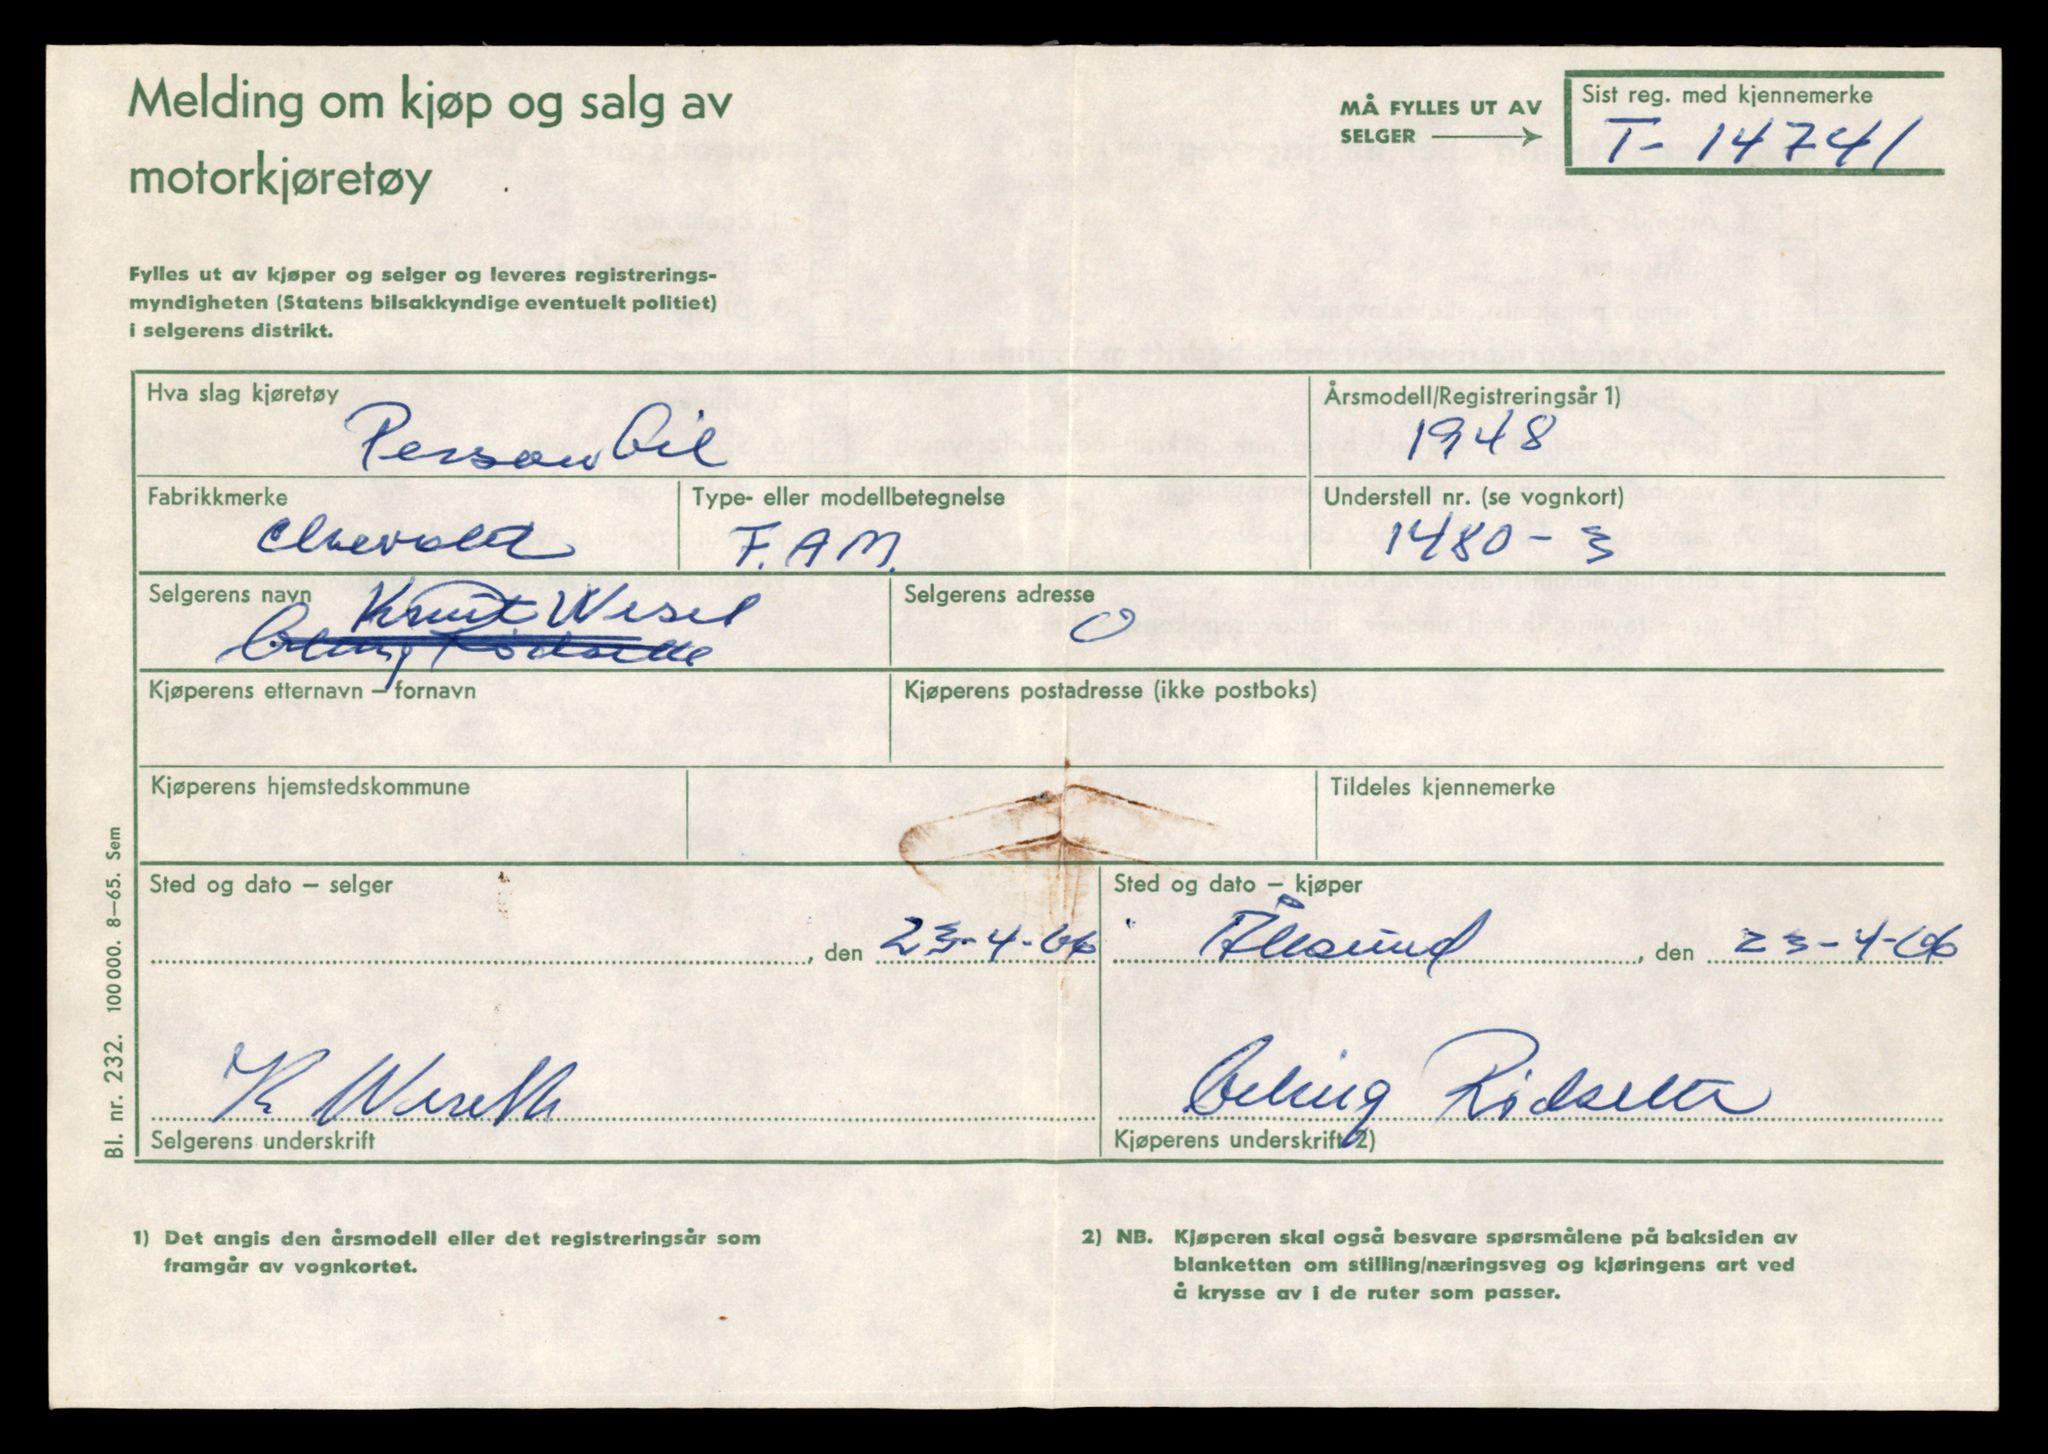 Melding om kjøp og salg av
motorkjøretøy
MÅ FYLLES UT AV
SELGER
Sist reg. med kjennemerke
T- 14741
Fylles ut av kjøper og selger og leveres registrerings-
myndigheten (Statens bilsakkyndige eventuelt politiet)
i selgerens distrikt.
Hva slag kjøretøy
Personbil
Årsmodell/Registreringsår 1)
1948
Fabrikkmerke
Chevrolet
Type- eller modellbetegnelse
F.A.M.
Understell nr. (se vognkort)
1480-3
Selgerens navn
Knut
Selgerens adresse
Kjøperens etternavn – fornavn
Kjøperens postadresse (ikke postboks)
Kjøperens hjemstedskommune
Tildeles kjennemerke
Sted og dato – selger
, den 23-4-66
Sted og dato – kjøper
Ålesund, den 23-4-66
K
Selgerens underskrift
Rødsette
Kjøperens underskrift 2)
Bl. nr. 232. 100 000. 8–65. Sem
1) Det angis den årsmodell eller det registreringsår som
framgår av vognkortet.
2) NB. Kjøperen skal også besvare spørsmålene på baksiden av
blanketten om stilling/næringsveg og kjøringens art ved
å krysse av i de ruter som passer.